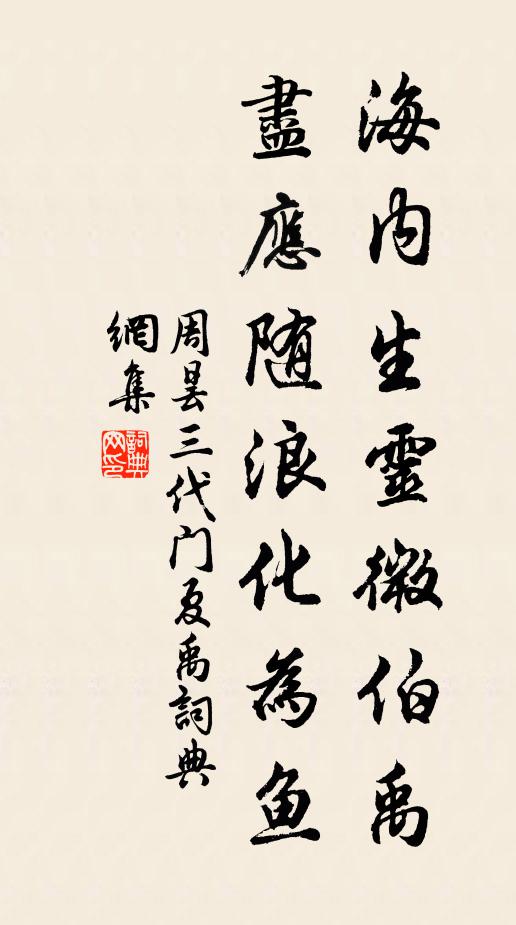 海内生靈微伯禹
盡應随浪化為鱼
周昙三代门夏禹詞典
網集
詞典
网印